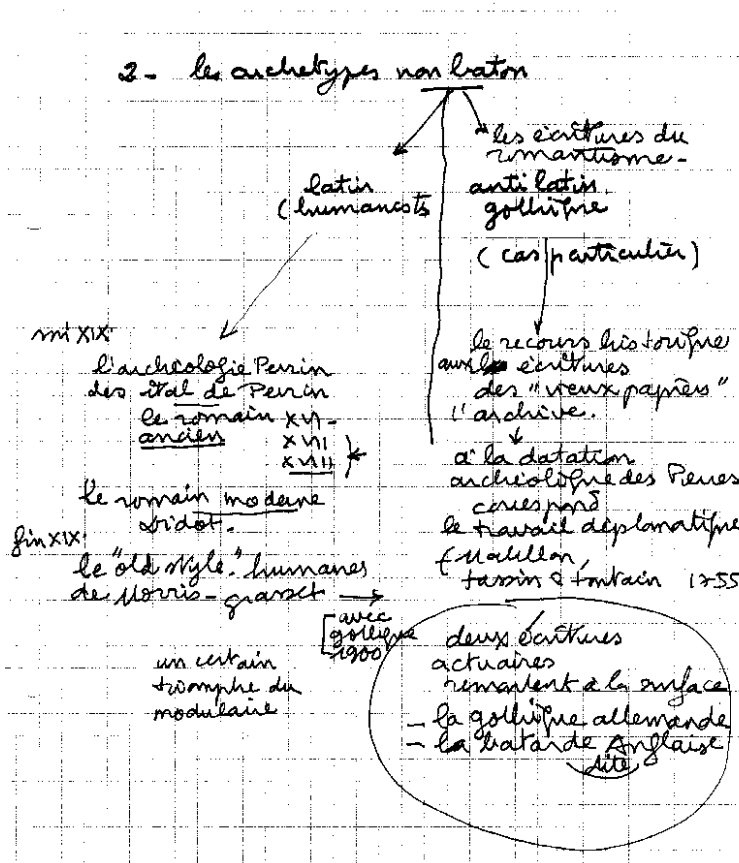 2- les archetypes non baton
latin
(humanosts
les écritures du
romantisme-
anti latin.
gothique
(cas particulier)
mi XIX
l'archéologie Perrin
des ital de Perrin
le romain XVI-
ancien XVII
XVIII
le romain moderne
Didot.
fin XIX
le "old style". humanes
de Morris-grasset
[avec
gothique
1900
un certain
triomphe du
modulaire
le recours historique
aux écritures
des "vieux papiers"
l'archive.
à la datation
archéologique des Pierres
correspond
le travail diplomatique
(Mabillon,
tassin & toustain 1755
deux écritures
actuaires
remontent à la surface
- la gothique allemande
- la batarde Anglaise
dite